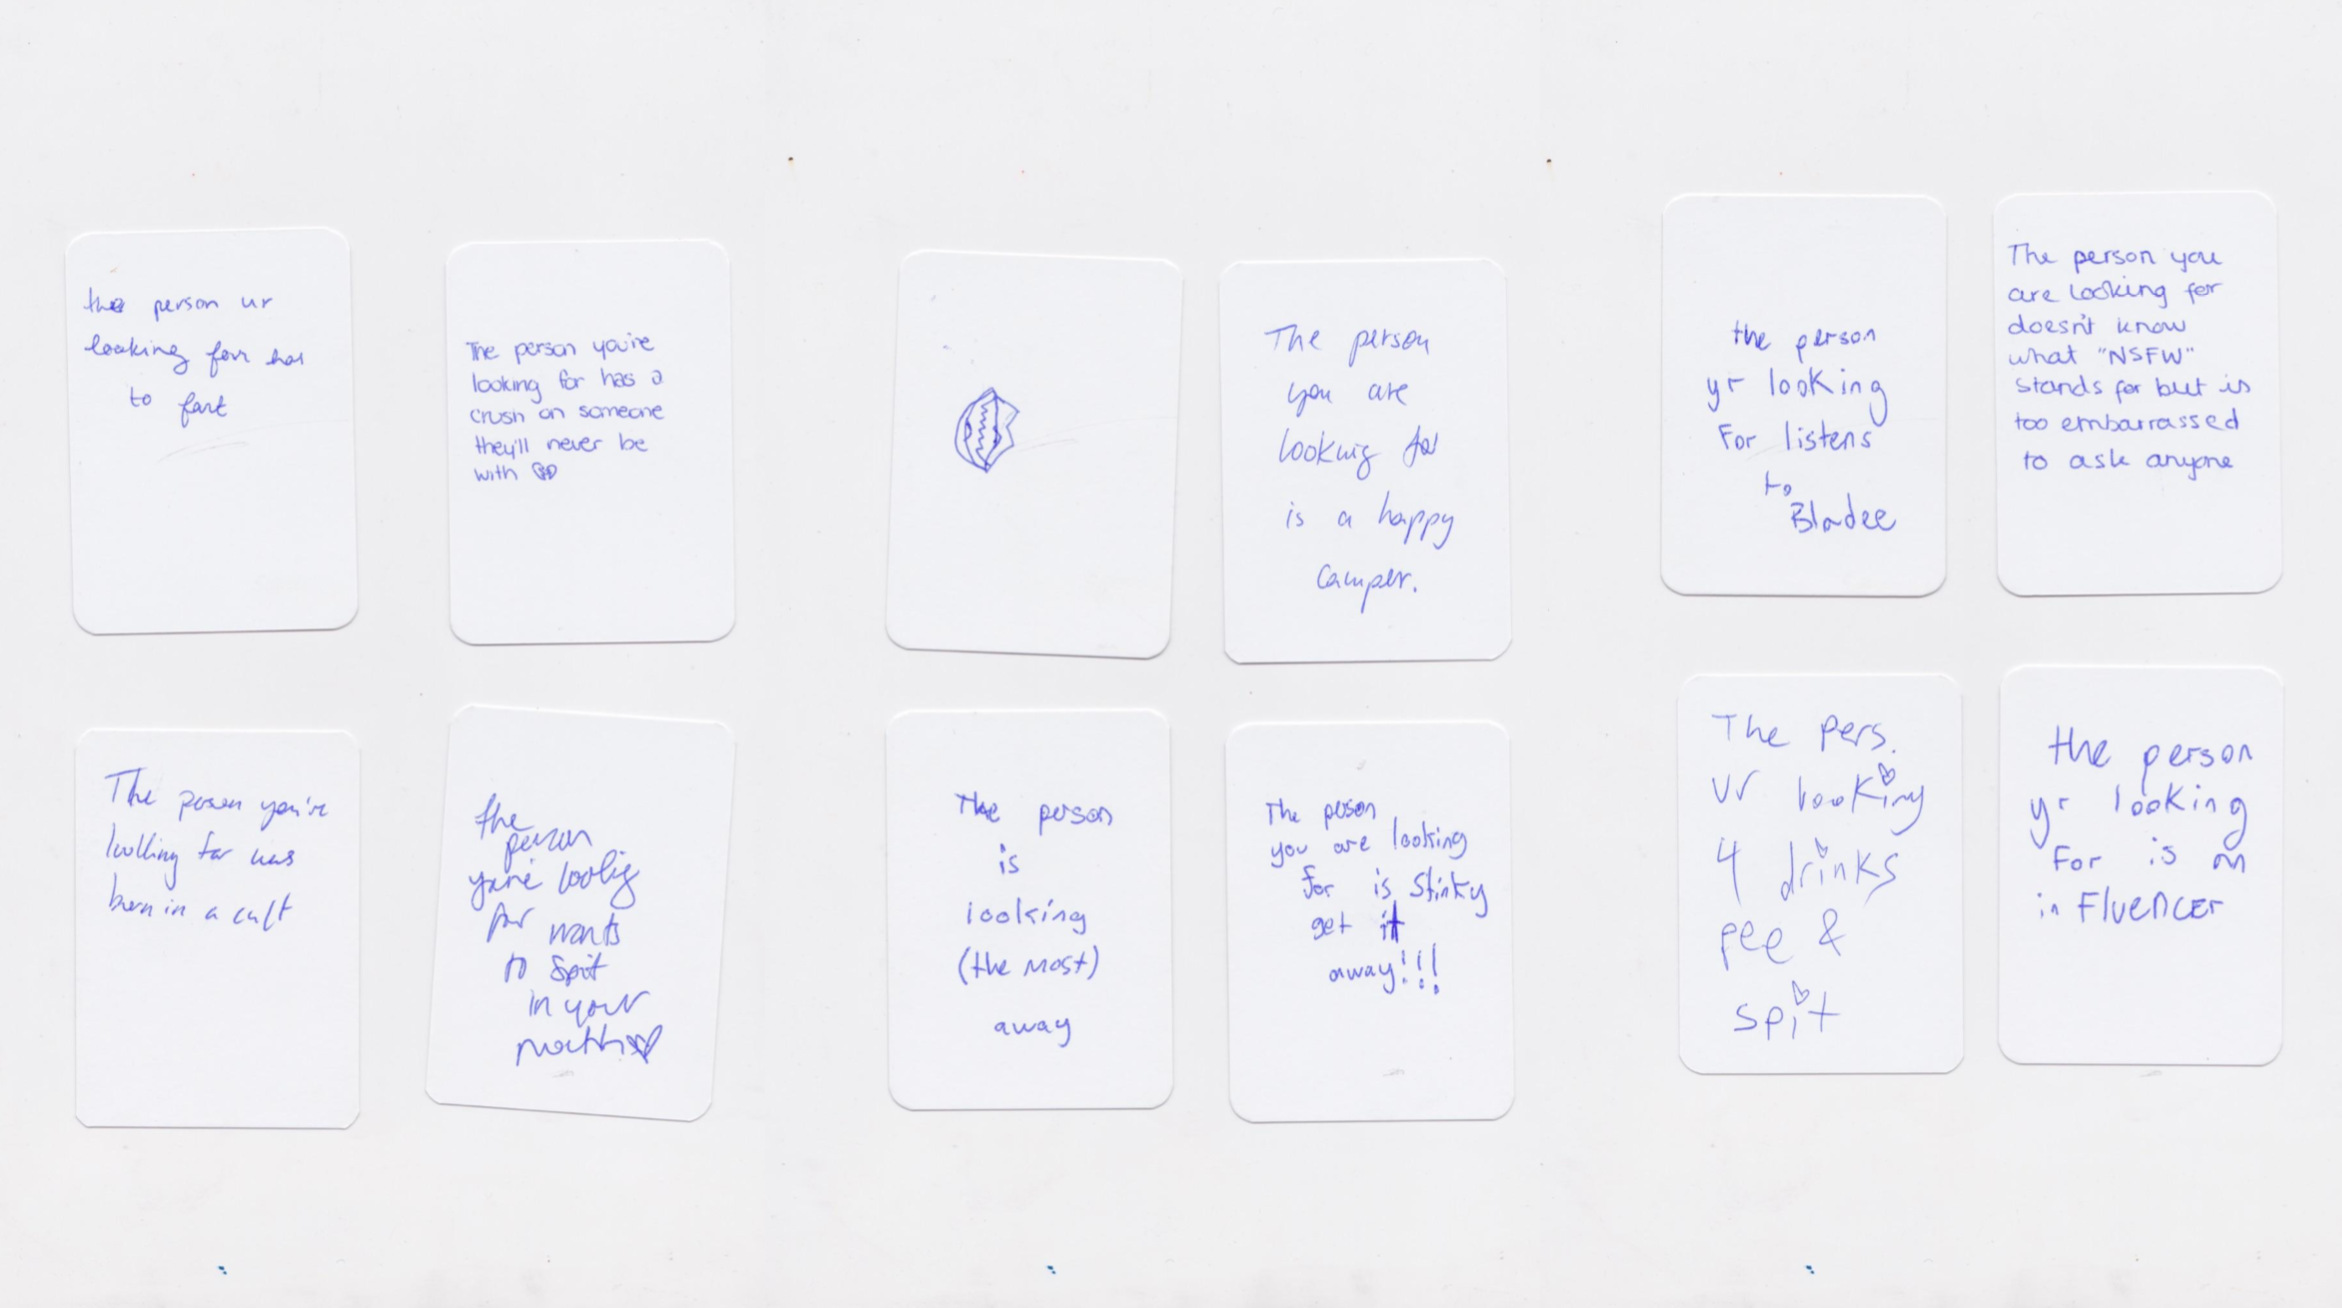 the person ur
looking for has
to fart
The person you're
looking for has a
crush on someone
they'll never be
with
The person
you are
looking for
is a happy
camper.
the person
yr looking
For listens
to
Bladee
The person you
are looking for
doesn't know
what "NSFW"
stands for but is
too embarrassed
to ask anyone
The person you're
looking for was
born in a cult
the
person
you're looking
for wants
to spit
in your
mouth
The person
is
looking
(the most)
away
The person
you are looking
for is stinky
get it
away!!!
The pers.
ur looking
4 drinks
pee &
spit
the person
yr looking
For is an
inFluencer